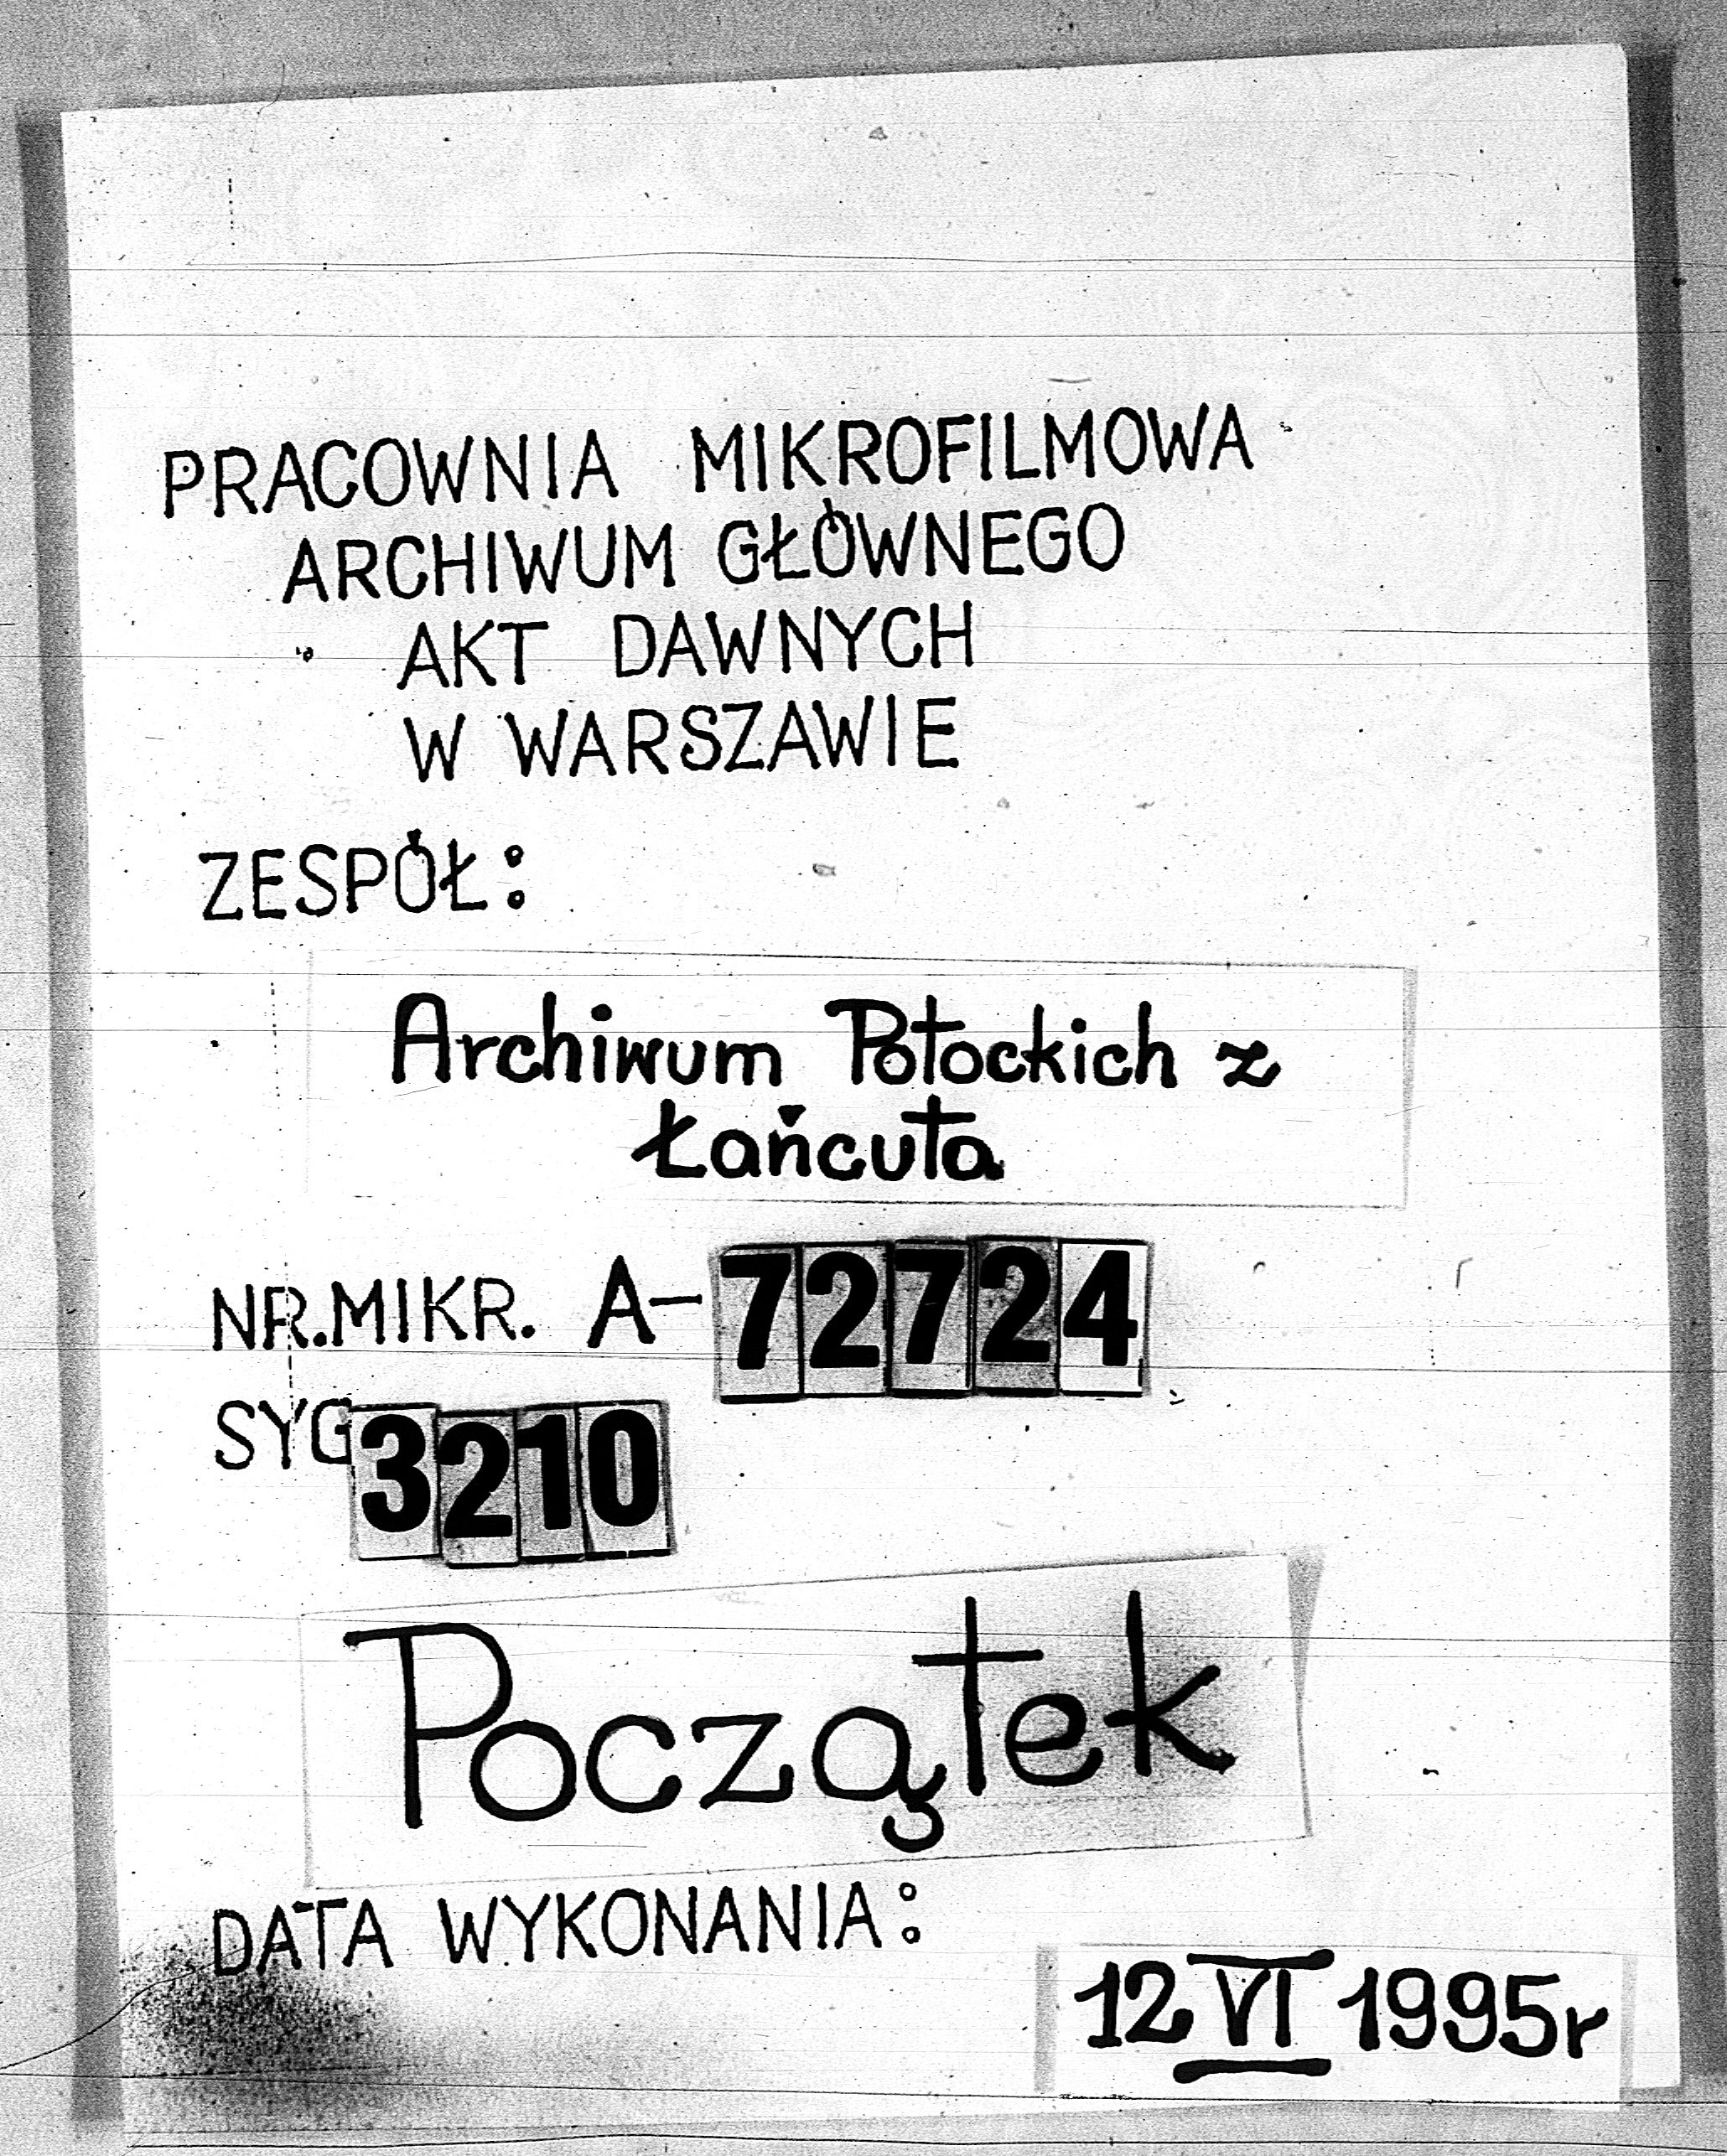 PRACOWNIA MIKROFILMOWA
ARCHIWUM GŁÓWNEGO
AKT DAWNYCH
W WARSZAWIE
ZESPÓŁ:
Archiwum Potockich z
Łańcuta
NR.MIKR. A-72724
SYG 3210
Początek
DATA WYKONANIA:
12 VI 1995r